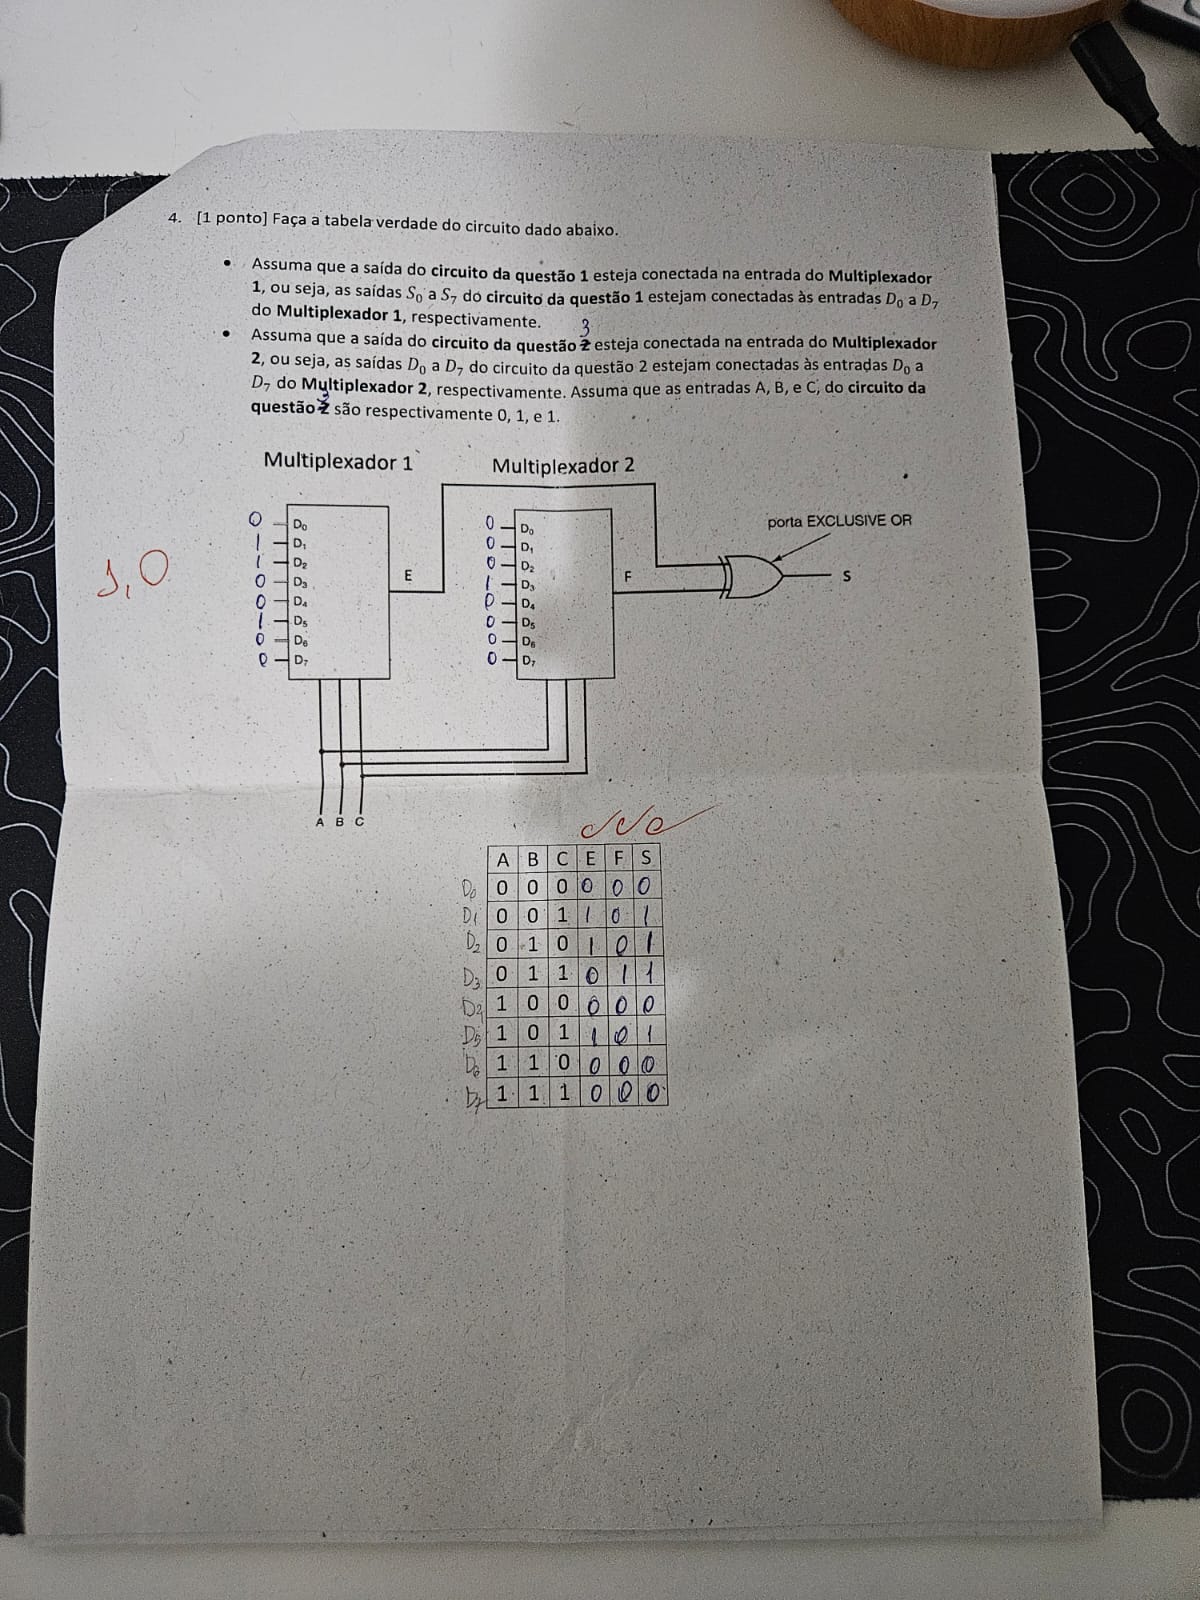 4. [1 ponto] Faça a tabela verdade do circuito dado abaixo.
• Assuma que a saída do circuito da questão 1 esteja conectada na entrada do Multiplexador
1, ou seja, as saídas S₀ a S₇ do circuito da questão 1 estejam conectadas às entradas D₀ a D₇
do Multiplexador 1, respectivamente.
3
• Assuma que a saída do circuito da questão 2 esteja conectada na entrada do Multiplexador
2, ou seja, as saídas D₀ a D₇ do circuito da questão 2 estejam conectadas às entradas D₀ a
D₇ do Multiplexador 2, respectivamente. Assuma que as entradas A, B, e C, do circuito da
3
questão 2 são respectivamente 0, 1, e 1.
Multiplexador 1
Multiplexador 2
0 D₀
1 D₁
1 D₂
0 D₃
0 D₄
1 D₅
0 D₆
0 D₇
E
0 D₀
0 D₁
0 D₂
1 D₃
0 D₄
0 D₅
0 D₆
0 D₇
F
porta EXCLUSIVE OR
S
1,0
A B C
A B C E F S
D₀ 0 0 0 0 0 0
D1 0 0 1 1 0 1
D₂ 0 1 0 1 0 1
D₃ 0 1 1 0 1 1
1 0 0 0 0 0
D₅ 1 0 1 1 0 1
D₆ 1 1 0 0 0 0
D₇ 1 1 1 0 0 0